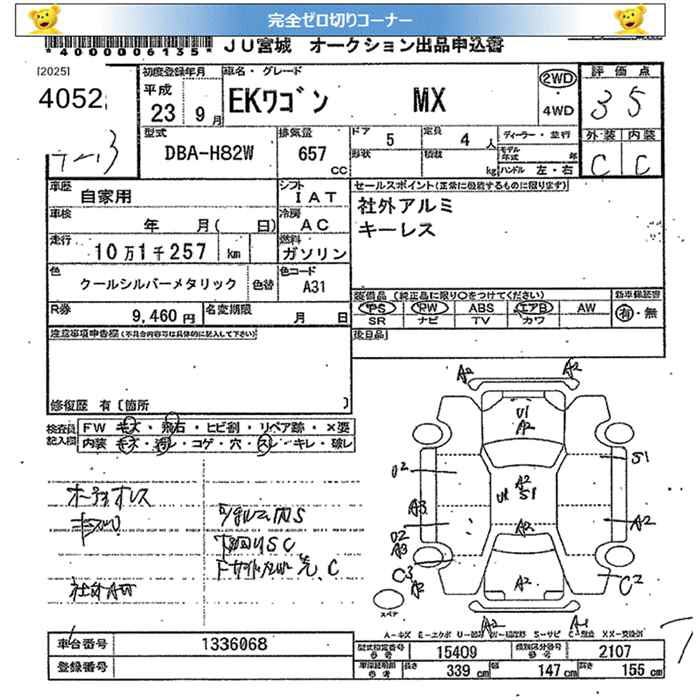 完全ゼロ切りコーナー
*4000006135* JU宮城 オークション出品申込書
[2025]
4052
初度登録年月 平成 23 9月
車名・グレード EKワゴン MX
2WD 4WD
評価点 3 5
外装 内装
C C
型式 DBA-H82W
排気量 657 CC
ドア 5 定員 4人
形状 積載 kg
ディーラー・並行
モデル年式 年
ハンドル 左・右
車歴 自家用
シフト IAT
車検 年 月( 日)
冷房 AC
走行 10万1千257 km
燃料 ガソリン
色 クールシルバーメタリック 色替
色コード A31
R券 9,460円
名変期限 月 日
セールスポイント(正常に機能するものに限ります)
社外アルミ
キーレス
装備品 (純正品に限り○をつけてください)
新車保証書
PS PW ABS エアB AW
有・無
SR ナビ TV カワ
後日品
注意事項申告欄(不具合内容等は具体的に記入して下さい)
修復歴 有〔箇所 〕
検査員記入欄
FW キズ・飛石・ヒビ割・リペア跡・×要
内装 キズ・汚れ・コゲ・穴・スレ・キレ・破レ
社外AW
A2 A2
U1
A2
U2 S1
A2
U1 S1
A3 A2
U2
A3
A2
C3
A2
A2
C2
スペア
A2 A1
A-キズ E-エクボ U-凹み S-サビ C-腐食 XX-交換済
車台番号 1336068
型式指定番号 15409
類別区分番号 2107
登録番号
長さ 339 cm 幅 147 cm 高さ 155 cm